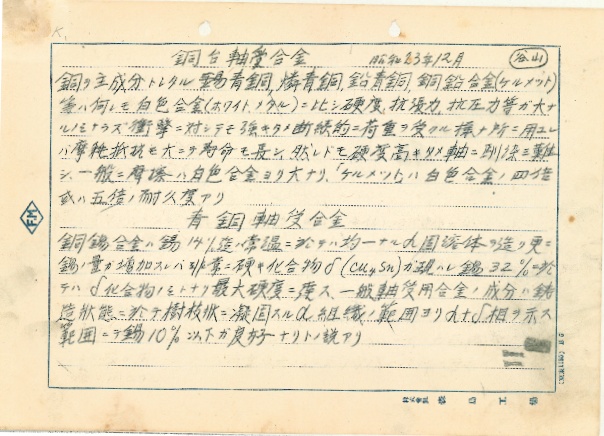 K.
銅台軸受合金 昭和23年12月 谷山
銅ヲ主成分トレタル錫青銅,燐青銅,鉛青銅,銅鉛合金(ケルメット)
等ハ何レモ白色合金(ホワイトメタル)ニ比シ硬度,抗張力,抗圧力等ガ大ナ
ルノミナラズ衝撃ニ対シテモ強キタメ断続的ニ荷重ヲ受クル様ナ所ニ用ユレ
バ摩耗抵抗モ大ニシテ寿命モ長シ,然レドモ硬度高キタメ軸ニ馴染ミ難
シ,一般ニ摩擦ハ白色合金ヨリ大ナリ,「ケルメット」ハ白色合金ノ四倍
或ハ五倍ノ耐久度アリ
青銅軸受合金
銅錫合金ハ錫14%迄ハ常温ニ於テハ均一ナルα固溶体ヲ造リ更ニ
錫ノ量ガ増加スレバ非常ニ硬キ化合物δ(Cu4Sn)ガ現ハレ錫32%ニ於
テハδ化合物ノミトナリ最大硬度ニ達ス,一般軸受用合金ノ成分ハ鋳
造状態ニ於テ樹枝状ニ凝固スルα組織ノ範囲ヨリα+δ相ヲ示ス
範囲ニテ錫10%以下ガ良好ナリトノ説アリ
FM
株式會社 工